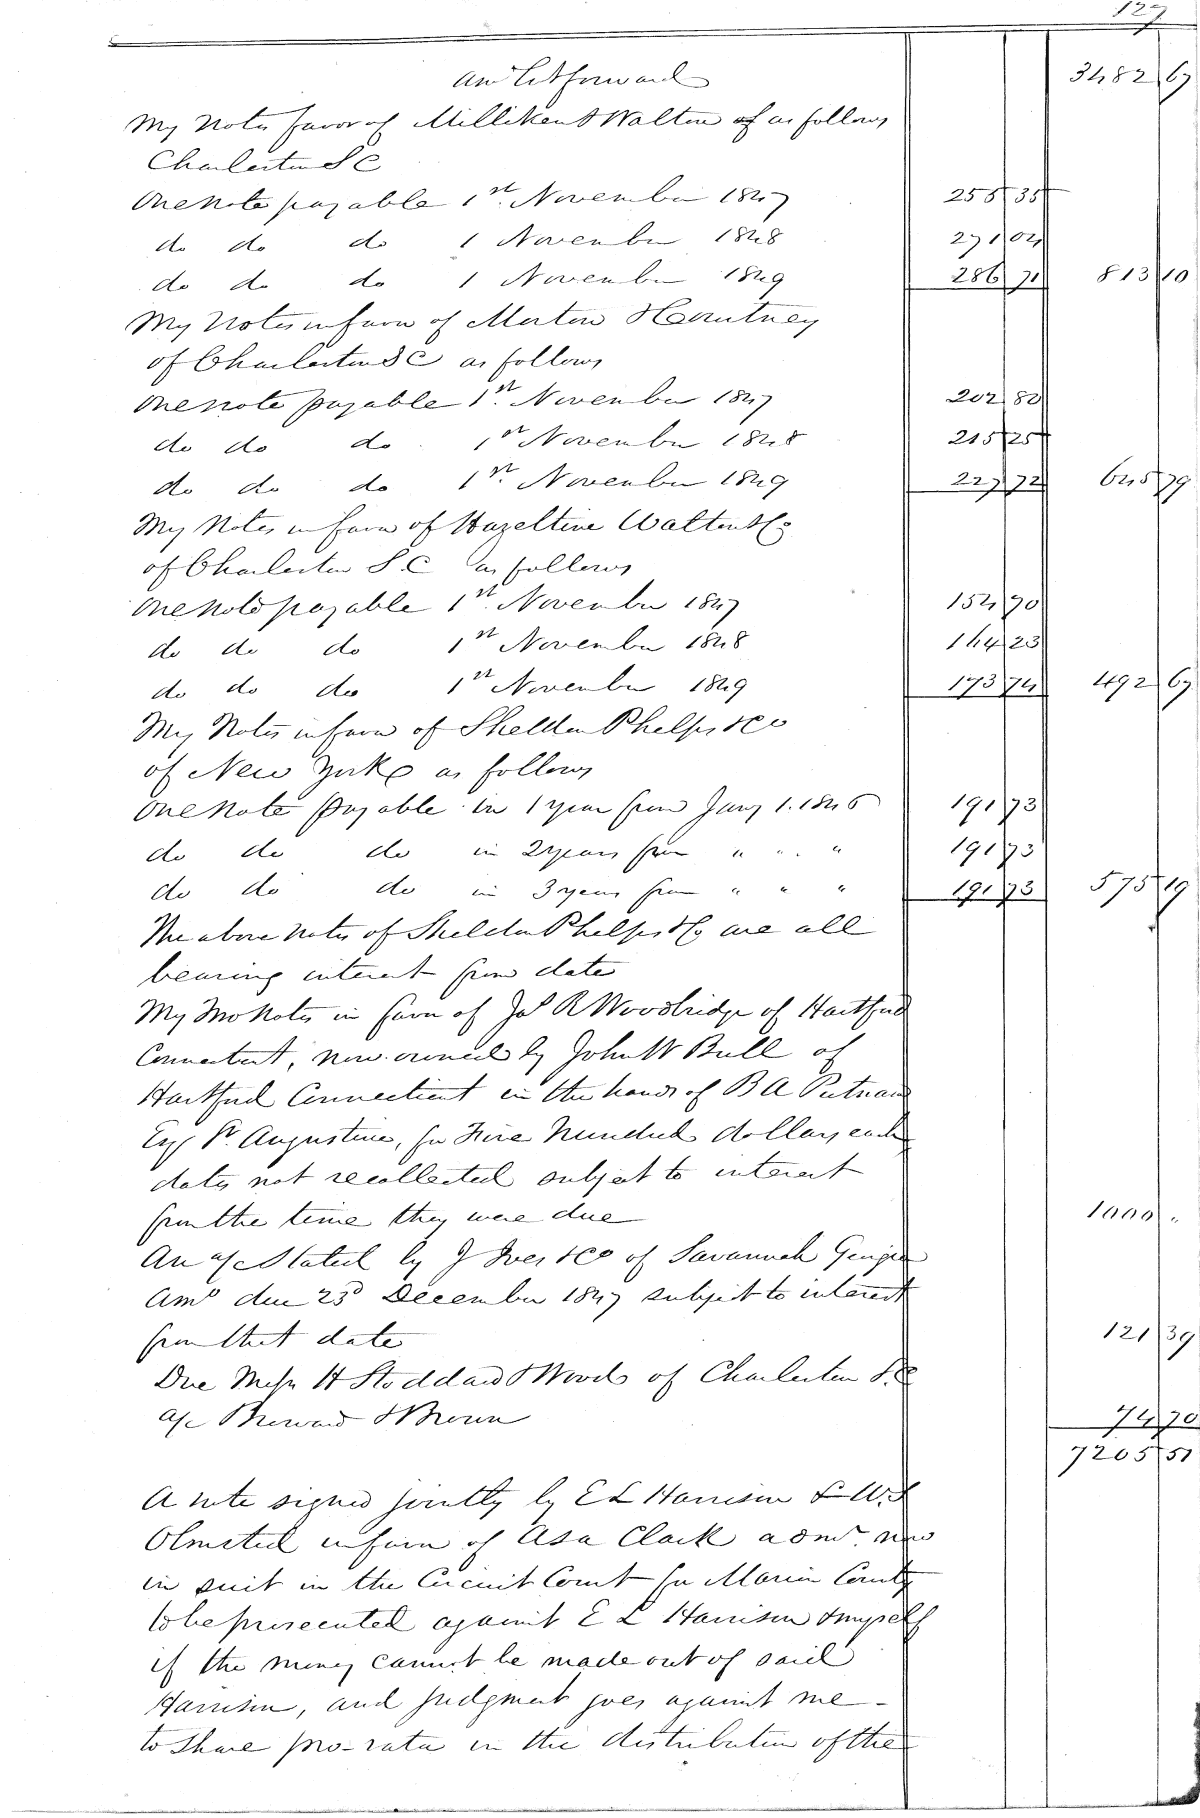 127
Amt bt forward 3482 67
My Notes favor of Milliken & Walton of as follows
Charleston S C
One Note payable 1st November 1847 255 35
do do do 1 November 1848 271 04
do do do 1 November 1849 286 71 813 10
My Notes in favor of Morton & Courtney
of Charleston S C as follows
One note payable 1st November 1847 202 82
do do do 1st November 1848 215 25
do do do 1st November 1849 227 72 645 79
My Notes in favor of Hazeltine Walton & Co
of Charleston S. C as follows
One Note payable 1st November 1847 154 70
do do do 1st November 1848 164 23
do do do 1st November 1849 173 74 492 67
My Notes in favor of Sheldon Phelps & Co
of New York as follows
One Note payable in 1 year from Jany 1. 1846 191 73
do do do in 2 years from " " " 191 73
do do do in 3 years from " " " 191 73 575 19
The above notes of Sheldon Phelps & Co are all
bearing interest from date
My two Notes in favor of Jas R Woodbridge of Hartford
Connecticut, now owned by John W Bull of
Hartford Connecticut in the hands of B A Putnam
Esq St. Augustine, for Five Hundred dollars each
dates not recollected subject to interest
from the time they were due 1000 "
An a/c Stated by J Ives & Co of Savannah Georgia
Amo due 23d December 1847 subject to interest
from that date 121 39
Due Messr H Stoddard & Woods of Charleston S. C
a/c Broward & Brown 74 70
7205 51
A note signed jointly by E L Harrison & W. S
Olmsted in favor of Asa Clark admr. now
in suit in the Circuit Court for Marion County
to be prosecuted against E L Harrison & myself
if the money cannot be made out of said
Harrison, and judgment goes against me -
to share pro-rata in the distribution of the